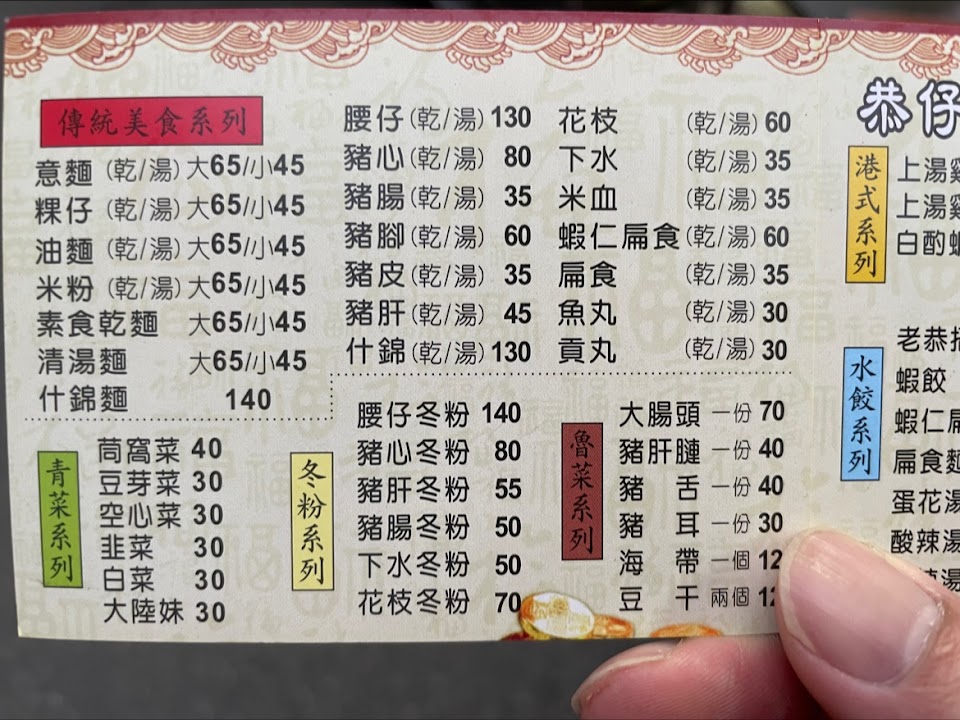 傳統美食系列
意麵 (乾/湯) 大65/小45
粿仔 (乾/湯) 大65/小45
油麵 (乾/湯) 大65/小45
米粉 (乾/湯) 大65/小45
素食乾麵 大65/小45
清湯麵 大65/小45
什錦麵 140
腰仔(乾/湯) 130
豬心(乾/湯) 80
豬腸(乾/湯) 35
豬腳(乾/湯) 60
豬皮(乾/湯) 35
豬肝(乾/湯) 45
什錦(乾/湯) 130
花枝 (乾/湯) 60
下水 (乾/湯) 35
米血 (乾/湯) 35
蝦仁扁食(乾/湯) 60
扁食 (乾/湯) 35
魚丸 (乾/湯) 30
貢丸 (乾/湯) 30
青菜系列
茼窩菜 40
豆芽菜 30
空心菜 30
韭菜 30
白菜 30
大陸妹 30
冬粉系列
腰仔冬粉 140
豬心冬粉 80
豬肝冬粉 55
豬腸冬粉 50
下水冬粉 50
花枝冬粉 70
魯菜系列
大腸頭 一份 70
豬肝腱 一份 40
豬舌 一份 40
豬耳 一份 30
海帶 一個 12
豆干 兩個 12
恭仔
港式系列
上湯雞
上湯雞
白酌蝦
水餃系列
老恭招
蝦餃
蝦仁扁
扁食麵
蛋花湯
酸辣湯